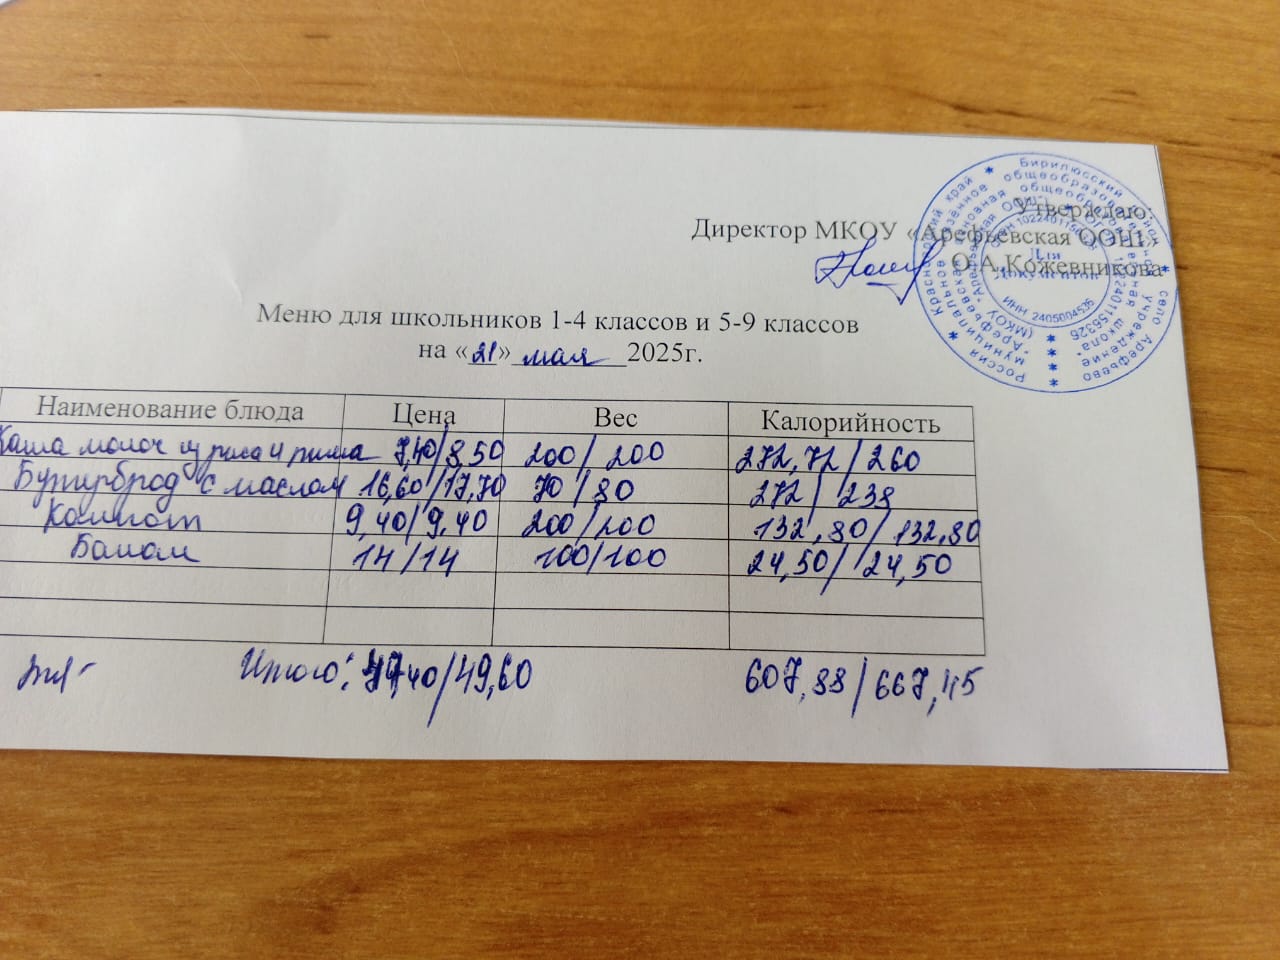 Утверждаю:
Директор МКОУ «Арефьевская ООШ»
О.А.Кожевникова
Меню для школьников 1-4 классов и 5-9 классов
на «21» мая 2025г.
Наименование блюда Цена Вес Калорийность
Каша молоч из риса и пшена 7,40/8,50 200/200 272,72/260
Бутерброд с маслом 16,60/17,70 70/80 272/238
Компот 9,40/9,40 200/200 132,80/132,80
Банан 14/14 100/100 24,50/24,50
Итого: 47,40/49,60 607,88/667,45
Россия Красноярский край Бирилюсский село Арефьево
муниципальное казённое общеобразовательное учреждение
"Арефьевская основная общеобразовательная школа"
(МКОУ "Арефьевская ООШ")
ИНН 2405004535
Для
документов